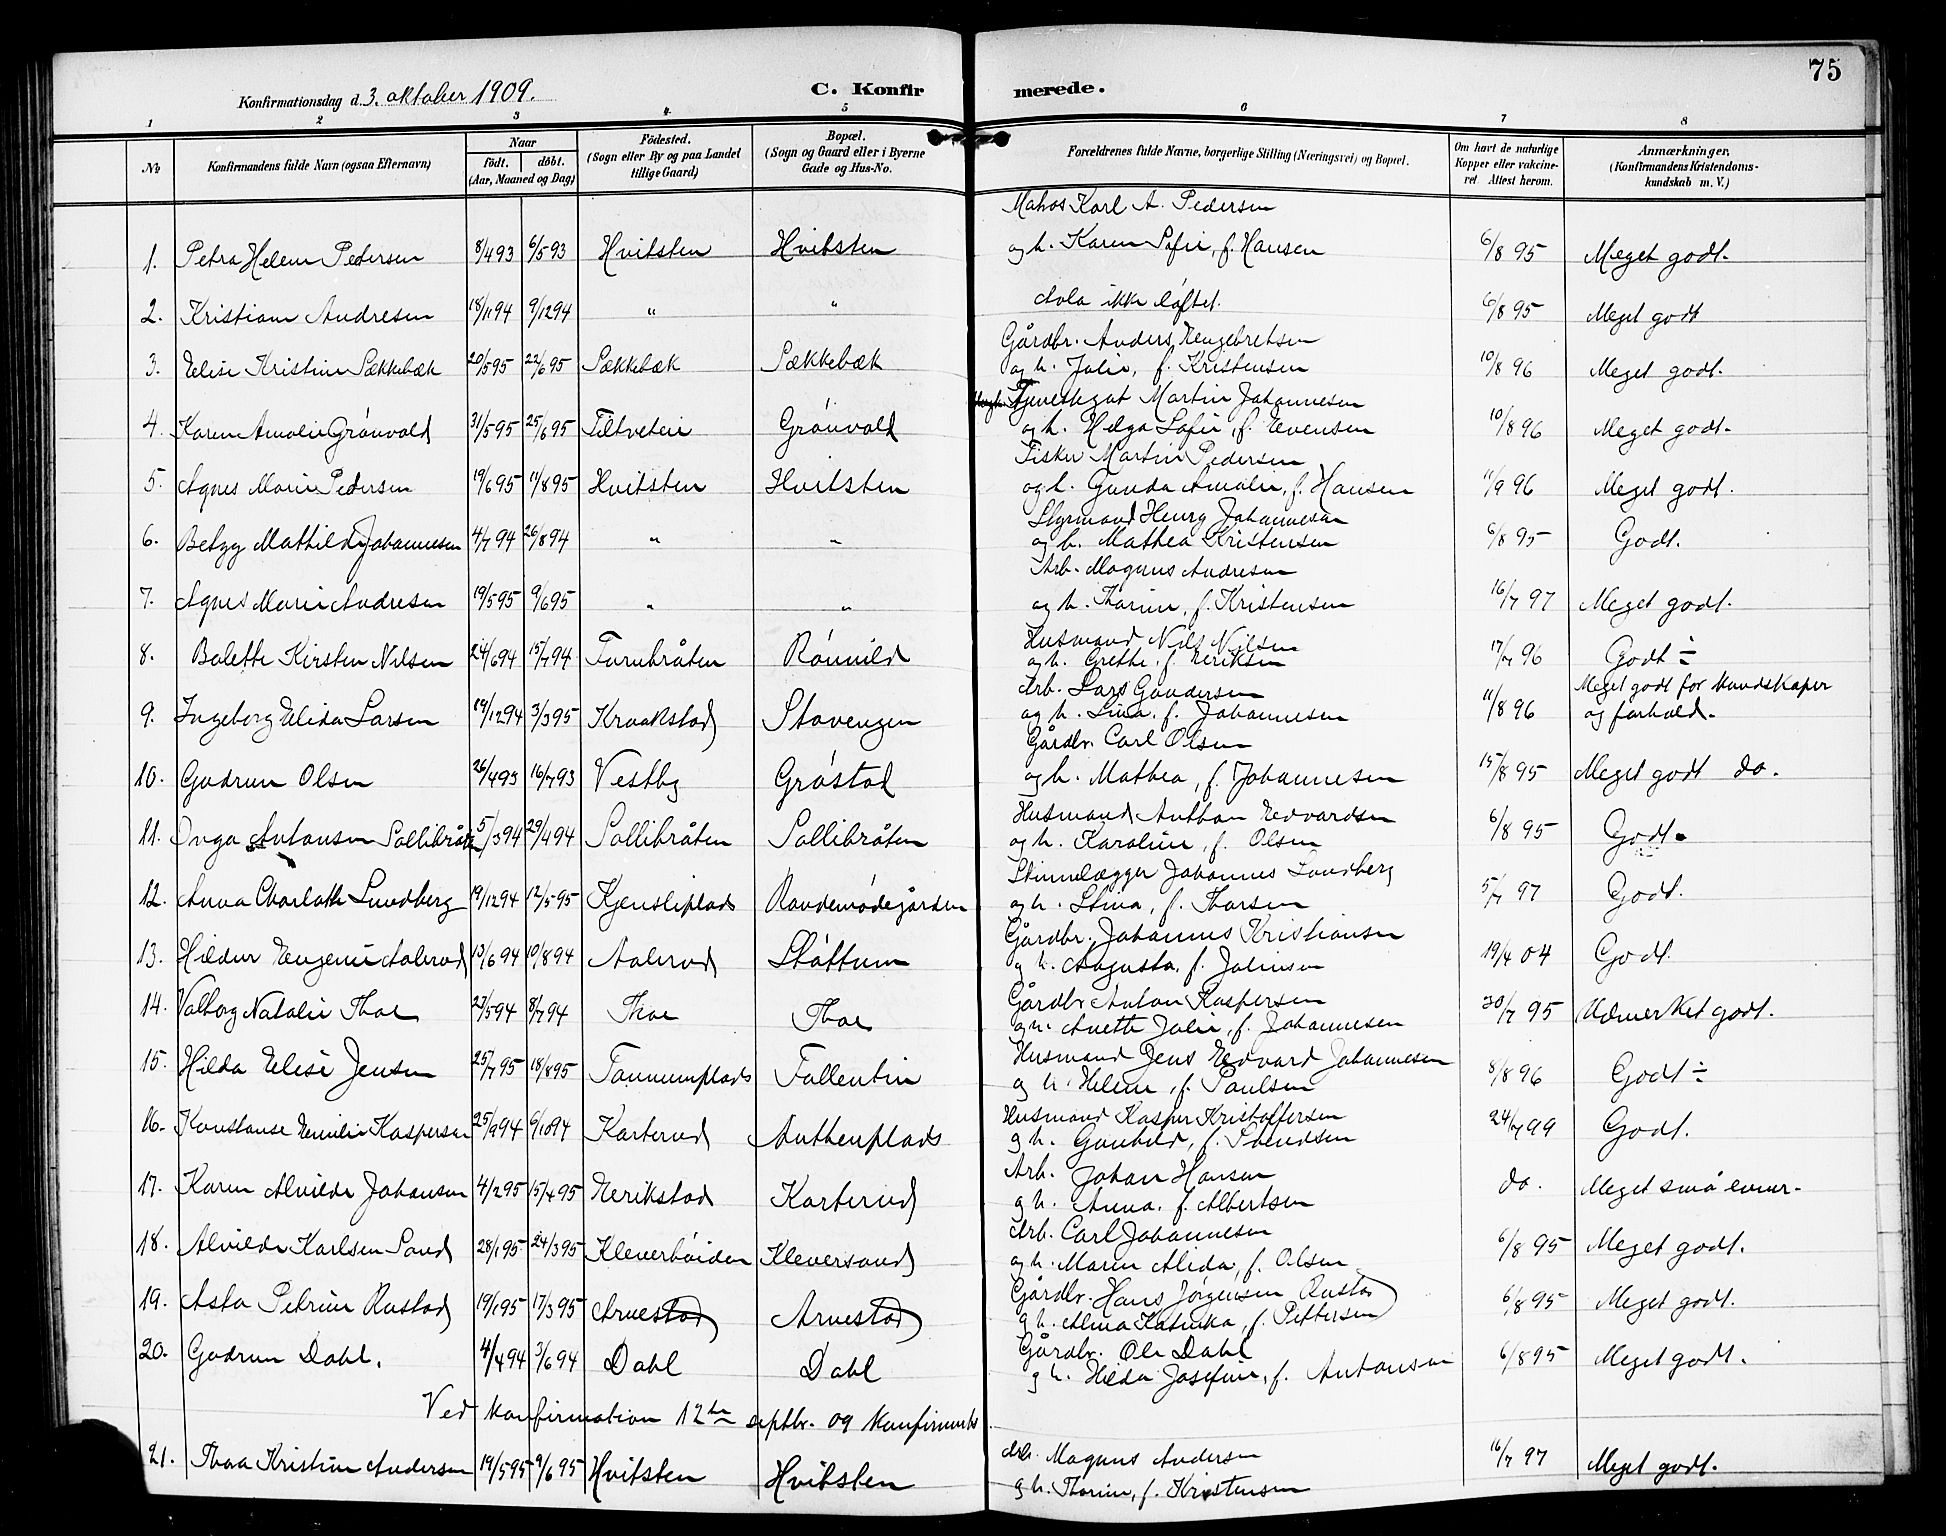 75
Konfirmationsdag d. 3. oktober 1909.
C. Konfirmerede.
1 2 3 4 5 6 7 8
No
Konfirmandens fulde Navn (ogsaa Efternavn)
Naar
födt. döbt.
(Aar, Maaned og Dag)
Födested.
(Sogn eller By og paa Landet
tillige Gaard)
Bopæl.
(Sogn og Gaard eller i Byerne
Gade og Hus-No.
Forældrenes fulde Navne, borgerlige Stilling (Næringsvei) og Bopæl.
Om havt de naturlige
Kopper eller vakcine-
ret. Attest herom.
Anmærkninger,
(Konfirmandens Kristendoms-
kundskab m. V.)
Matros Karl A. Pedersen
1. Petra Helene Pedersen 8/4 93 6/5 93 Hvitsten Hvitsten og h. Karen Sofie, f. Hansen 6/8 95 Meget godt.
2. Kristiane Andresen 18/11 94 9/12 94 " " ikke løftet. 6/8 95 Meget godt
Gårdbr. Anders Engebretsen
3. Elise Kristine Sækkebæk 20/5 95 22/6 95 Sækkebæk Sækkebæk og h. Julie, f. Kristensen 10/8 96 Meget godt.
Martin Johannesen
4. Karen Amalie Grönvold 31/5 95 25/6 95 Filtveteie Grönvold og h. Helga Sofie, f. Evensen 10/8 96 Meget godt.
Fisker Martin Pedersen
5. Agnes Marie Pedersen 19/6 95 11/8 95 Hvitsten Hvitsten og h. Gunda Amalie, f. Hansen 11/9 96 Meget godt.
Styrmand Henry Johannesen
6. Betzy Mathilde Johannesen 4/7 94 26/8 94 " " og h. Mathea Kristensen 6/8 95 Godt.
Arb. Magnus Andresen
7. Agnes Marie Andresen 19/5 95 9/6 95 " " og h. Thorine, f. Kristensen 16/7 97 Meget godt.
Husmand Nils Nilsen
8. Bolette Kirsten Nilsen 24/6 94 15/7 94 Furubråten Rönnild og h. Grethe, f. Eriksen 17/7 96 Godt ÷
Arb. Lars Gundersen Meget godt for kundskaper
9. Ingeborg Elida Larsen 19/12 94 3/3 95 Kraakstad Stovengen og h. Lina, f. Johannesen 11/8 96 og forhold.
Gårdbr. Carl Olsen
10. Gudrun Olsen 26/4 93 16/7 93 Vestby Gröstad og h. Mathea, f. Johannesen 15/8 95 Meget godt do.
Husmand Anthon Edvardsen
11. Inga Antonsen Sollibråten 5/3 94 29/4 94 Sollibråten Sollibråten og h. Karoline, f. Olsen 6/8 95 Godt.
Johannes Lundberg
12. Anna Charlotte Lundberg 19/12 94 12/5 95 Kjensliplads Randemødegården og h. Stina, f. Thorsen 5/7 97 Godt.
Gårdbr. Johannes Kristiansen
13. Hildur Eugenie Aalerud 13/6 94 10/8 94 Aalerud Støttum og h. Augusta, f. Johnsen 19/4 04 Godt.
Gårdbr Anton Kaspersen
14. Valborg Natalie Thoe 27/5 94 8/7 94 Thoe Thoe og h. Anette Julie, f. Johannesen 30/7 95 Udmerket godt.
Husmand Jens Edvard Johannesen
15. Hilda Elise Jensen 25/7 95 18/8 95 Tannumplads Fallentin og h. Helene, f. Paulsen 8/8 96 Godt ÷
Husmand Kasper Kristoffersen
16. Konstanse Emilie Kaspersen 25/9 94 6/10 94 Karterud Authenplads og h. Gunhild, f. Svendsen 24/7 99 Godt.
Arb. Johan Hansen
17. Karen Alvilde Johansen 4/2 95 15/4 95 Erikstad Karterud og h. Anna, f. Albertsen do. Meget små evner.
Arb. Carl Johannesen
18. Alvilde Karlsen Sand 28/1 95 24/3 95 Kleverhöiden Kleversand og h. Maren Alida, f. Olsen 6/8 95 Meget godt.
Gårdbr. Hans Jørgensen Rustad
19. Asta Petrine Rustad 19/1 95 17/3 95 Arnestad Arnestad og h. Alma Katinka, f. Pettersen 6/8 95 Meget godt.
Gårdbr. Ole Dahl
20. Gudrun Dahl. 4/4 94 3/6 94 Dahl Dahl og h. Hilda Josefine, f. Antonsen 6/8 95 Meget godt.
Ved konfirmation 12te septbr. og konfirmertes.
Arb. Magnus Andersen
21. Thea Kristine Andersen 19/5 95 9/6 95 Hvitsten Hvitsten og h. Thorine, f. Kristensen 16/7 97 Meget godt.